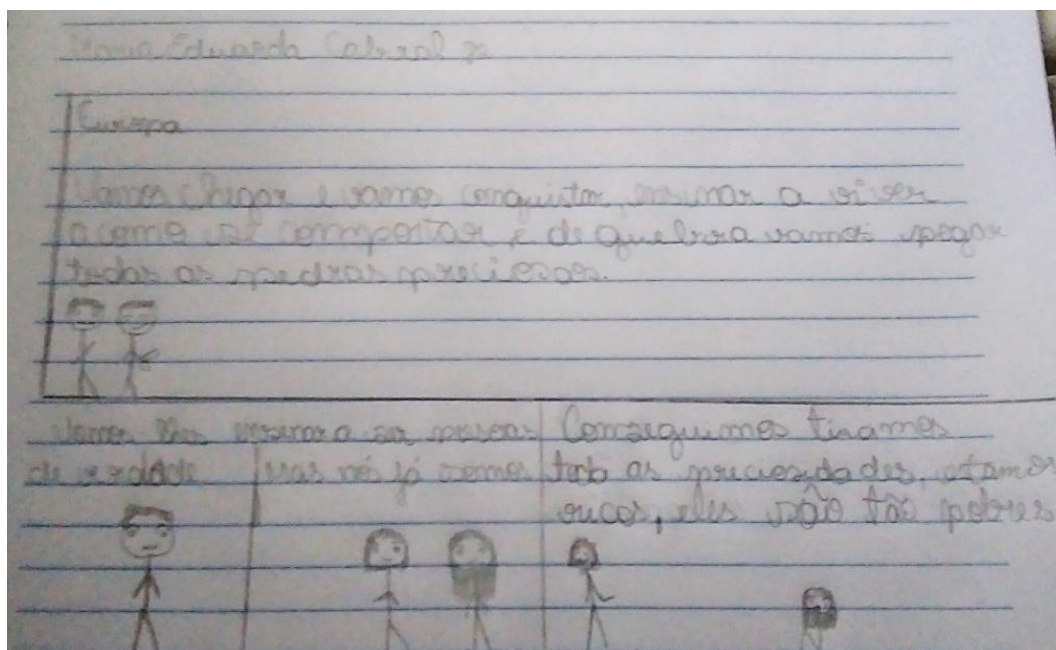 Maria Eduarda Cabral
Europa
Vamos chegar e vamos conquistar, ensinar a viver
a como se compportar e de quebra vamos pegar
todas as pedras preciosas.
Vamos ensinar a ser pessoas
de verdade
mas nós já somos
Conseguimos tiramos
toda as preciosidades, estamos
ricos, eles são tão pobres